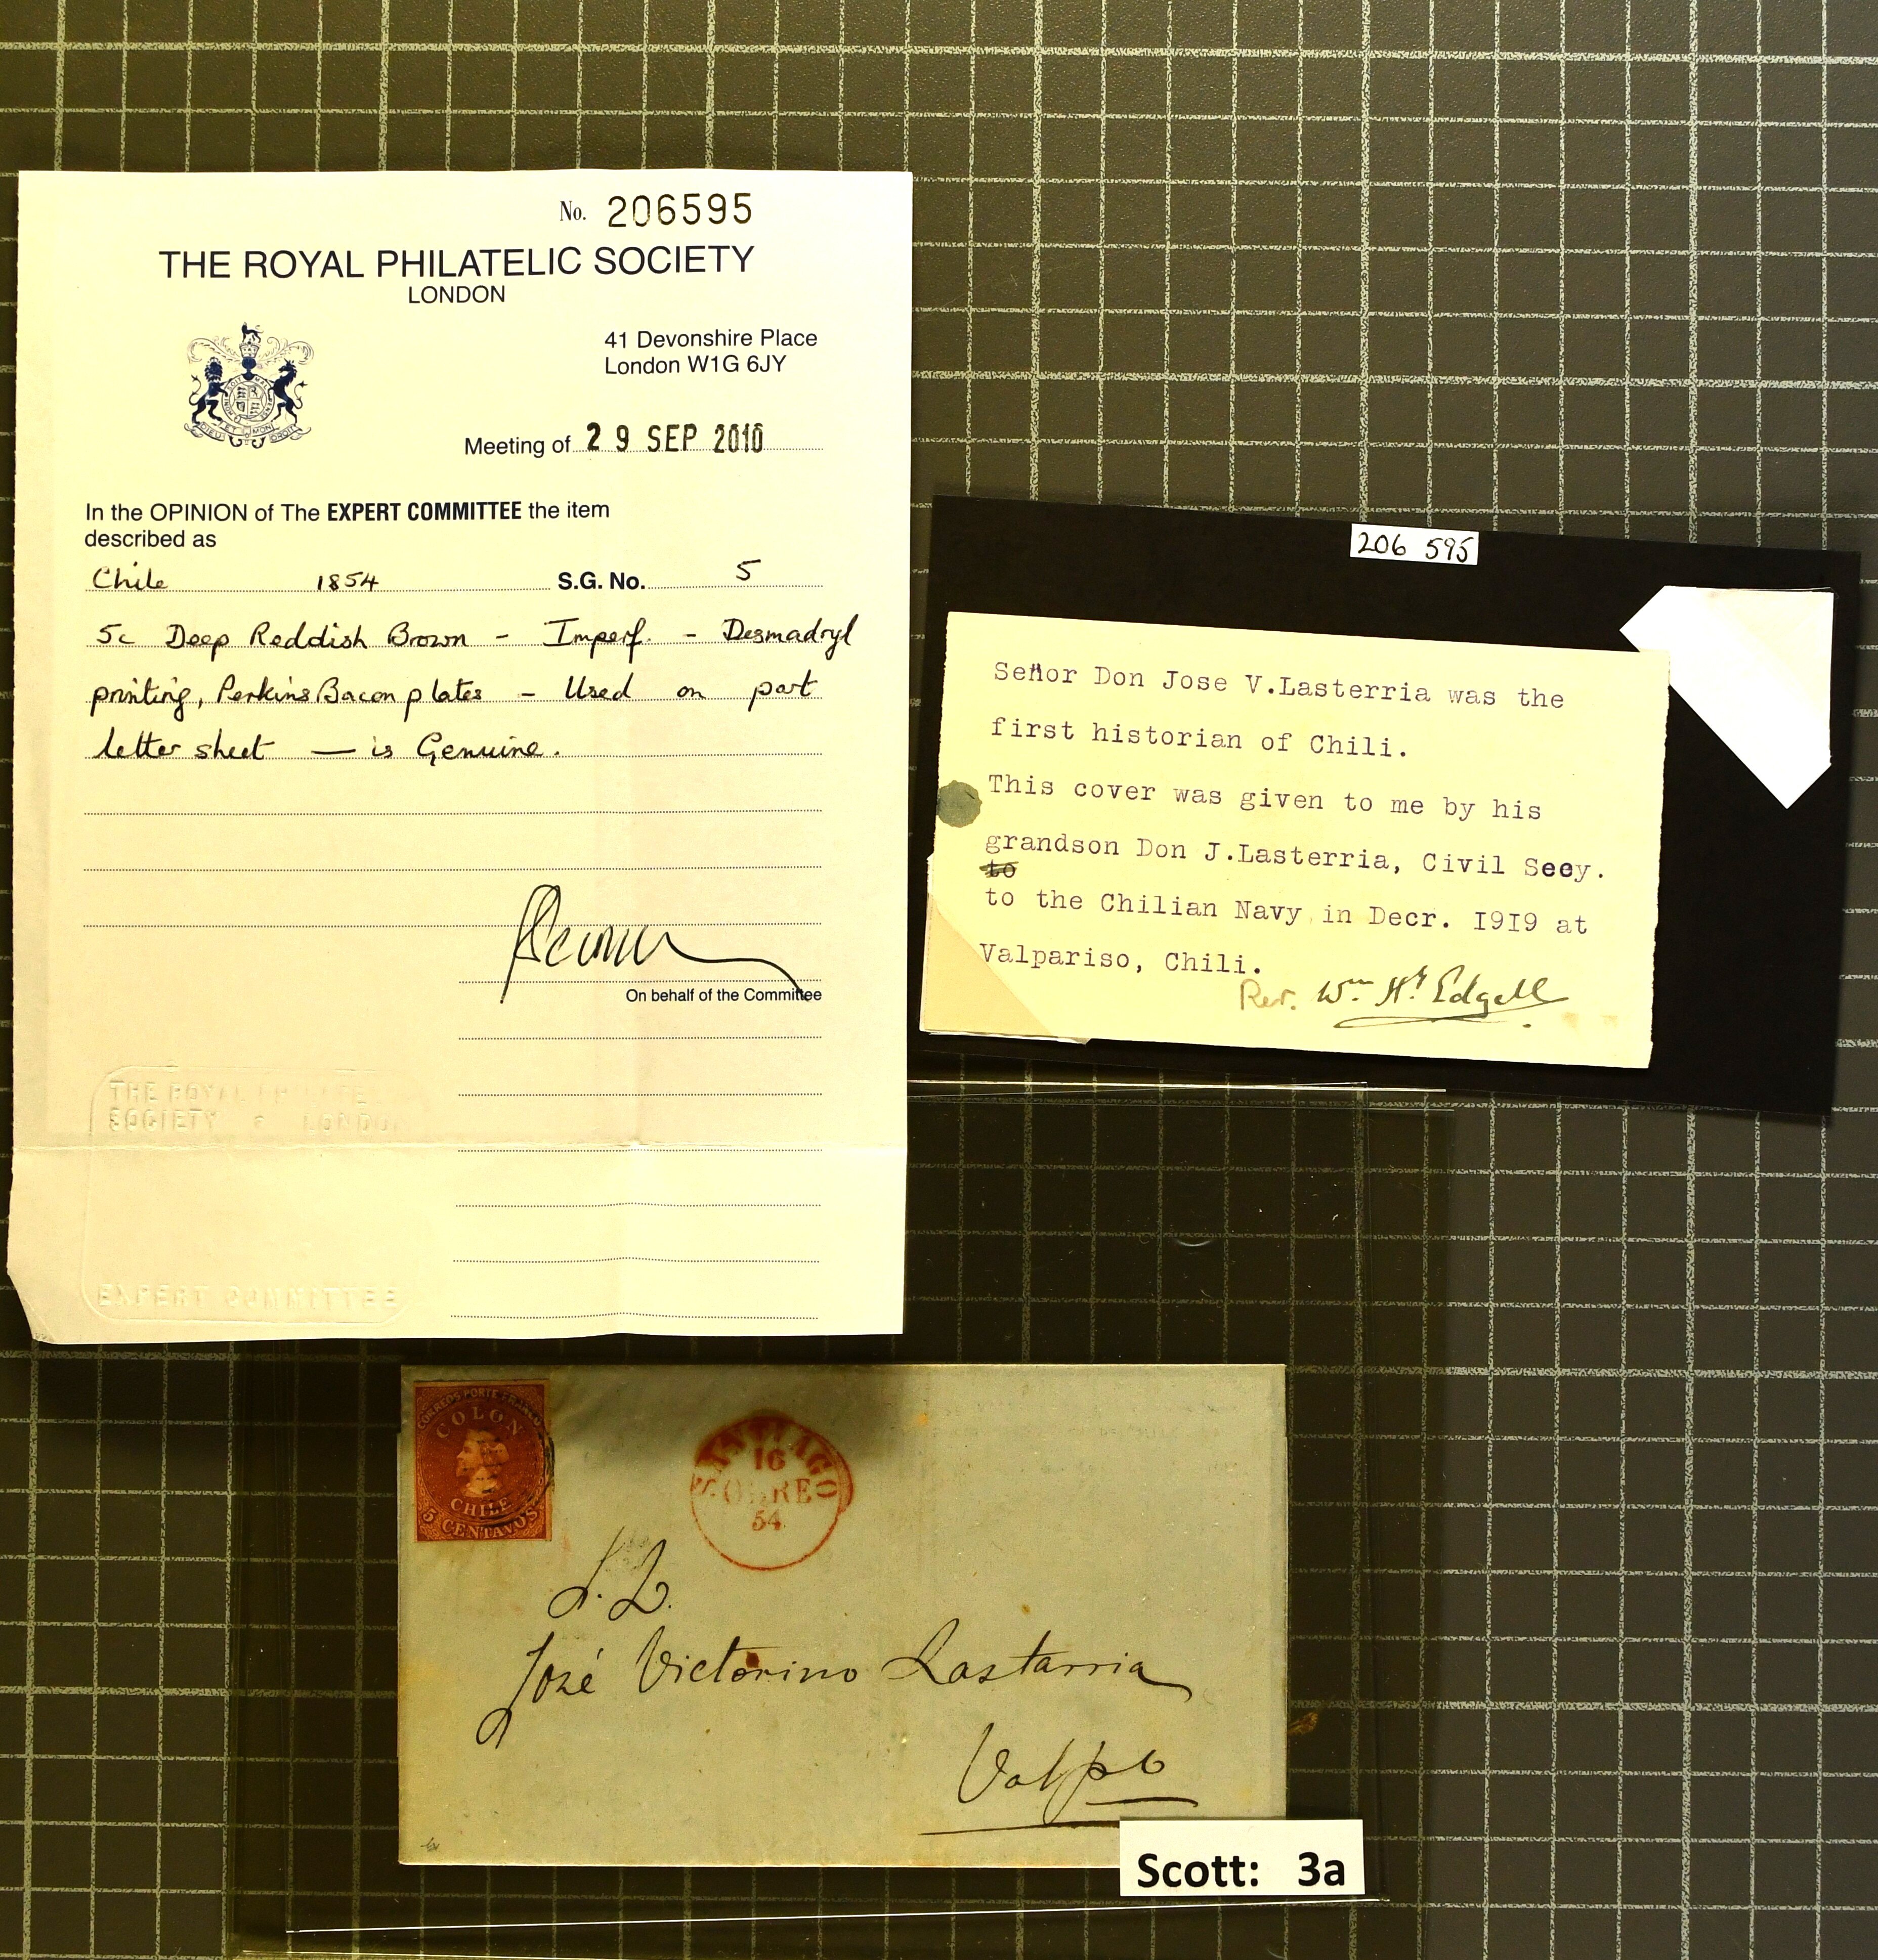 No. 206595
THE ROYAL PHILATELIC SOCIETY
LONDON
41 Devonshire Place
London W1G 6JY
Meeting of 29 SEP 2010
In the OPINION of The EXPERT COMMITTEE the item
described as
Chile 1854 S.G. No. 5
5c Deep Reddish Brown - Imperf. - Desmadryl
printing, Perkins Bacon plates - Used on part
letter sheet — is Genuine.
On behalf of the Committee
THE ROYAL PHILATELIC
SOCIETY LONDON
EXPERT COMMITTEE
206 595
Señor Don Jose V.Lasterria was the
first historian of Chili.
This cover was given to me by his
grandson Don J.Lasterria, Civil Seey.
to
to the Chilian Navy in Decr. 1919 at
Valpariso, Chili.
Rev. Wm Hy Edgell
CORREOS PORTE FRANCO
COLON
CHILE
5 CENTAVOS
SANTIAGO
16
54
José Victorino Lastarria
Valpo
Scott: 3a